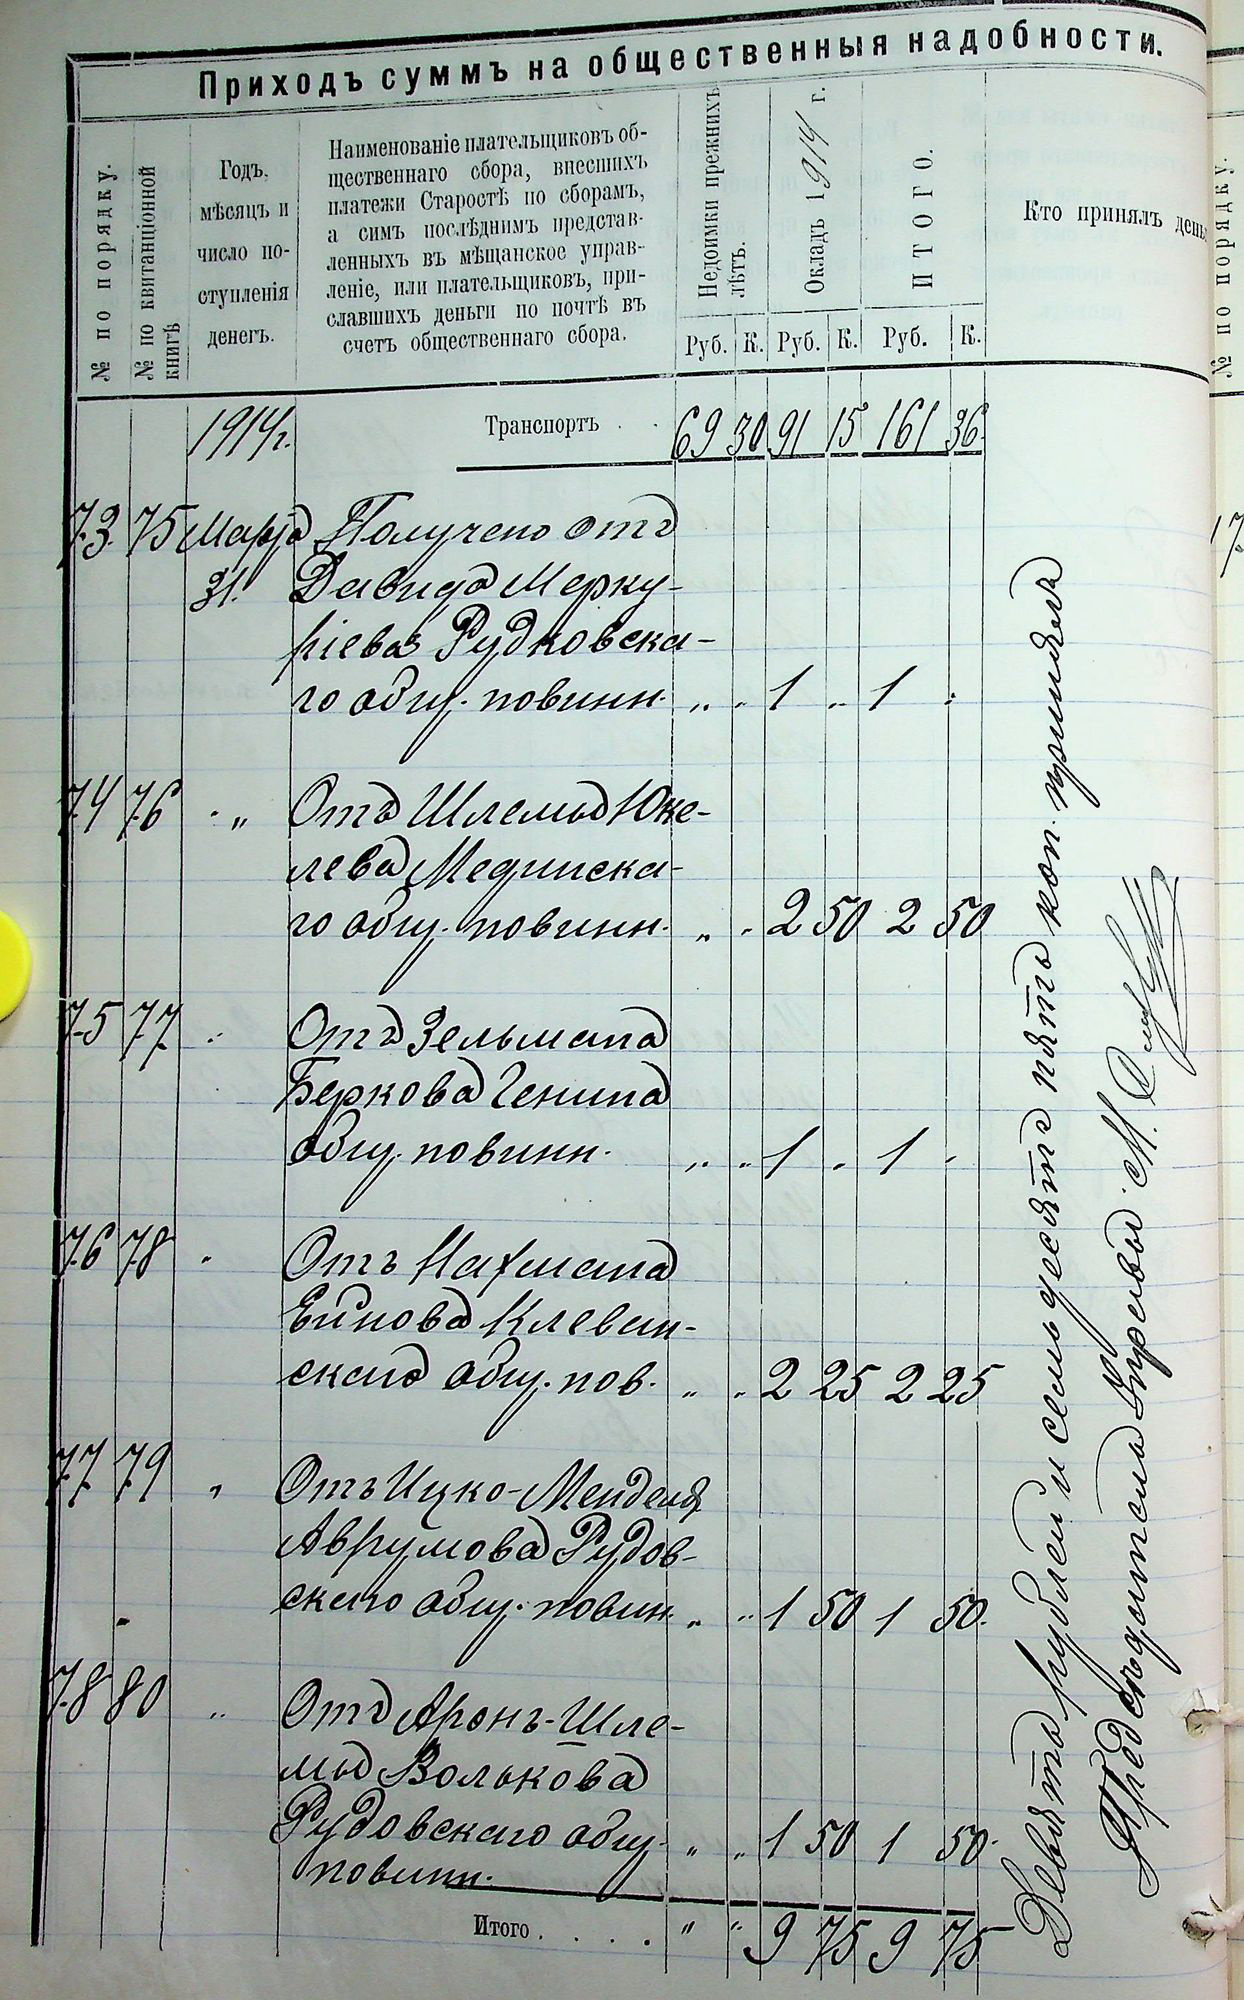 Приходъ суммъ на общественныя надобности.
№ по порядку.
№ по квитанціонной книгѣ
Годъ, мѣсяцъ и число поступленія денегъ.
Наименованіе плательщиковъ об-
щественнаго сбора, внесшихъ
платежи Старостѣ по сборамъ,
а симъ послѣднимъ представ-
ленныхъ въ мѣщанское управ-
леніе, или плательщиковъ, при-
славшихъ деньги по почтѣ въ
счетъ общественнаго сбора.
Недоимки прежнихъ лѣтъ.
Окладъ 1914 г.
ИТОГО.
Кто принялъ день
Руб. К. Руб. К. Руб. К.
№ по порядку.
1914 г. Транспортъ . . 69 30 91 15 161 36
73 75 Марта Получено отъ
31. Давида Мерку-
ріева Рудковска-
го общ. повинн. „ „ 1 „ 1 „
74 76 „ Отъ Шлемы Юке-
лева Мединска-
го общ. повинн. „ „ 2 50 2 50
75 77 „ Отъ Зельмана
Беркова Генина
общ. повинн. „ „ 1 „ 1 „
76 78 „ Отъ Нахмана
Ейнова Клеван-
скаго общ. пов. „ „ 2 25 2 25
77 79 „ Отъ Ицко-Менделя
Аврумова Рудов-
скаго общ. повин. „ „ 1 50 1 50
78 80 „ Отъ Аронъ-Шле-
мы Волькова
Рудовскаго общ.
повинн. „ „ 1 50 1 50
Итого . . . . „ „ 9 75 9 75
Девять рублей и семьдесятъ пять коп. принялъ
Предсѣдатель Управы М.
17